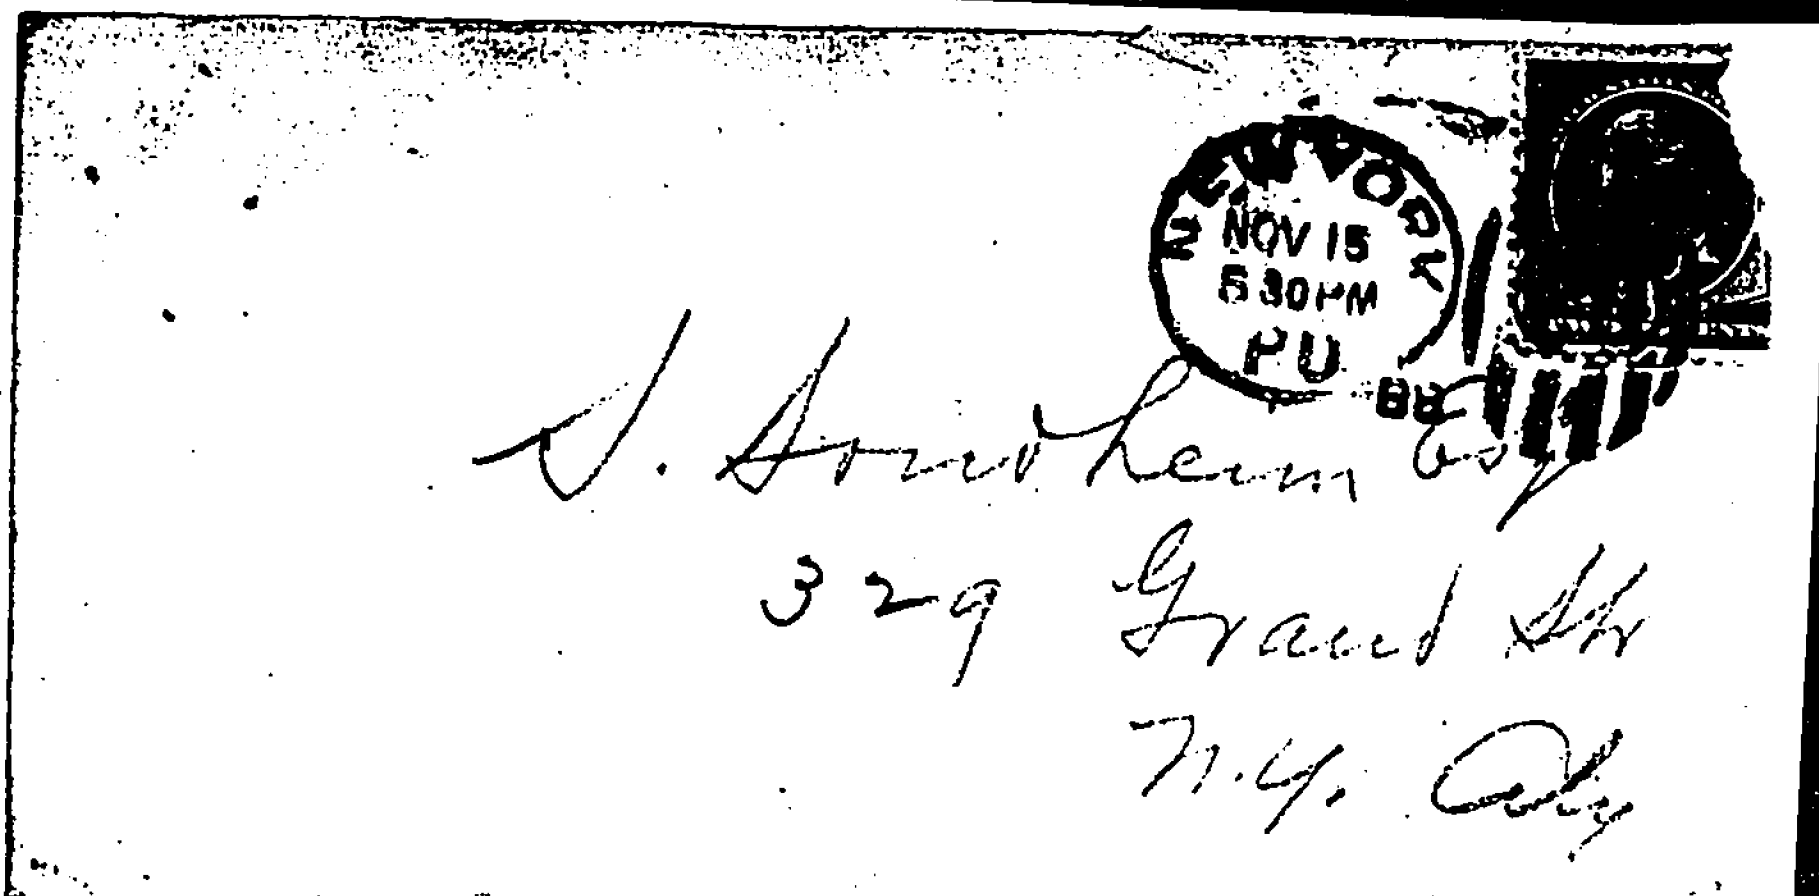 NEW YORK
NOV 15
5 30 PM
P U
88
S. Sondheim Esq
329 Grand Str
N.Y. City